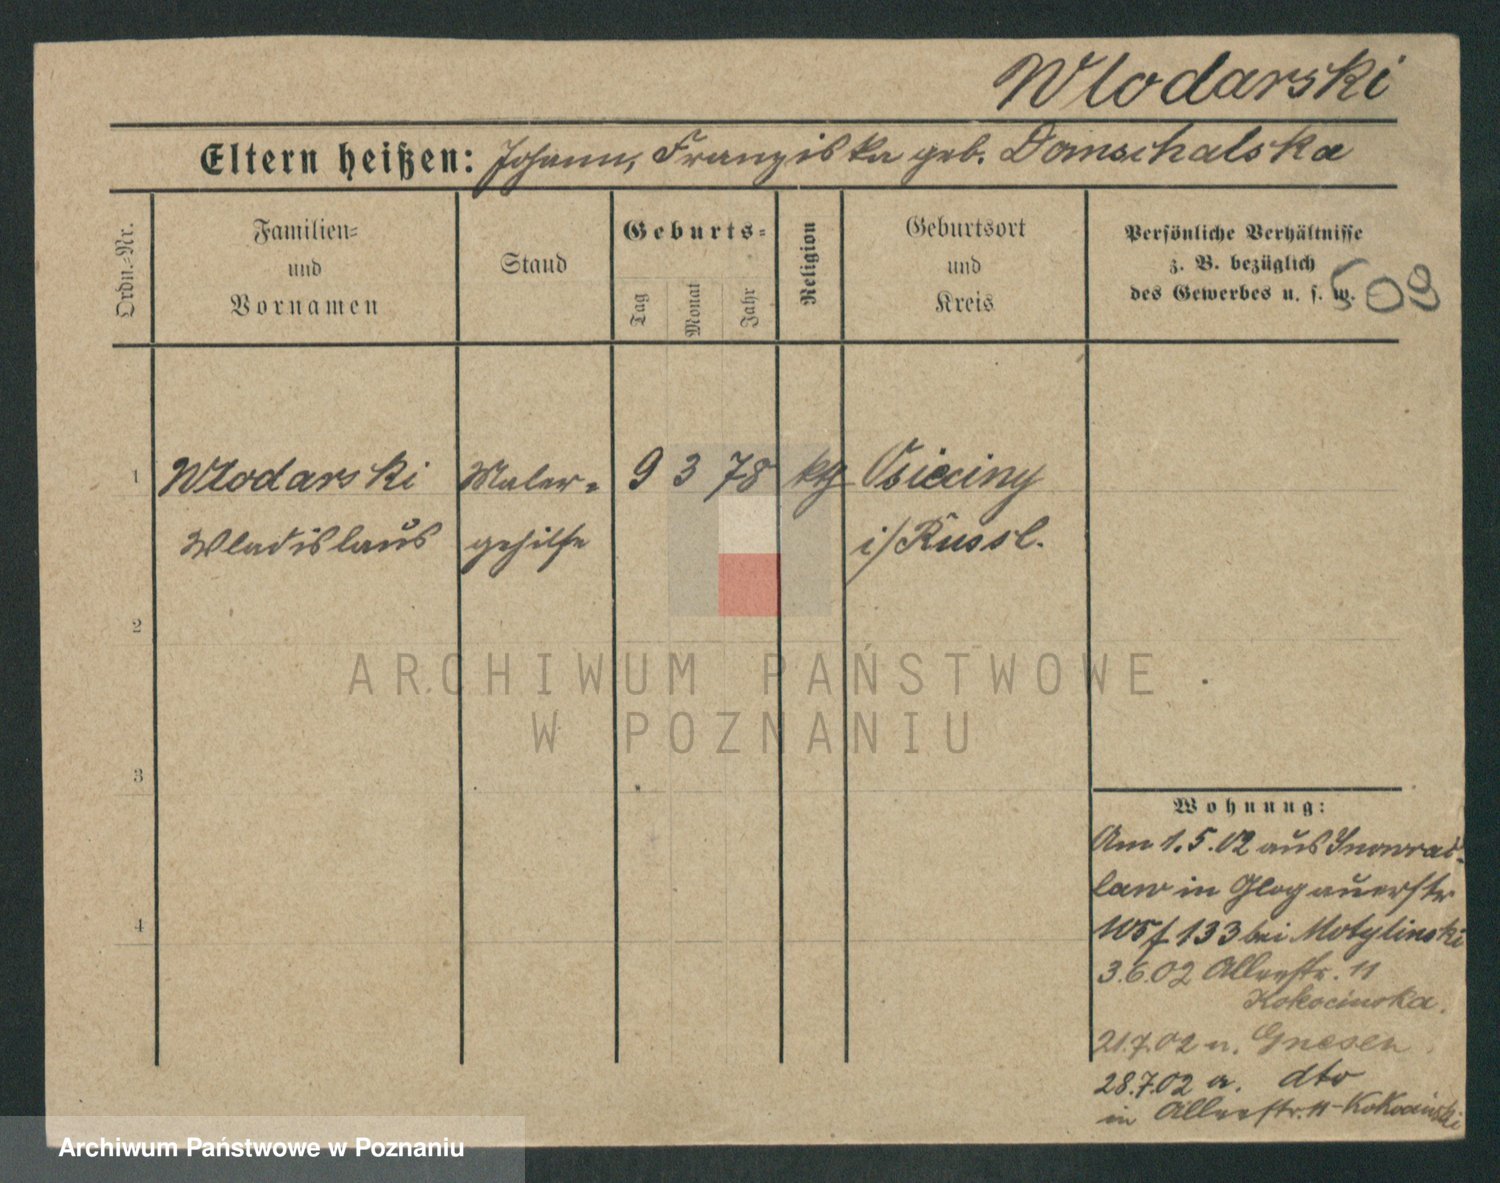 Wlodarski
Eltern heißen: Johann, Franziska geb. Domschalska
Ordn.-Nr.
Familien-
und
Vornamen
Stand
Geburts-
Tag
Monat
Jahr
Religion
Geburtsort
und
Kreis
Persönliche Verhältnisse
z. B. bezüglich
des Gewerbes u. s. w.
509
1 Wlodarski Maler- 9 3 78 kth Osieciny
Wladislaus gehilfe i/Russl.
2
3
4
Wohnung:
Am 1.5.02 aus Inowraz-
law in Glogauerstr
105 f 133 bei Motylinski
3.6.02 Alleestr. 11
Kokocinska.
21.7.02 n. Gnesen
28.7.02 a. dto
in Alleestr. 11 - Kokocinski
ARCHIWUM PAŃSTWOWE
W POZNANIU
Archiwum Państwowe w Poznaniu